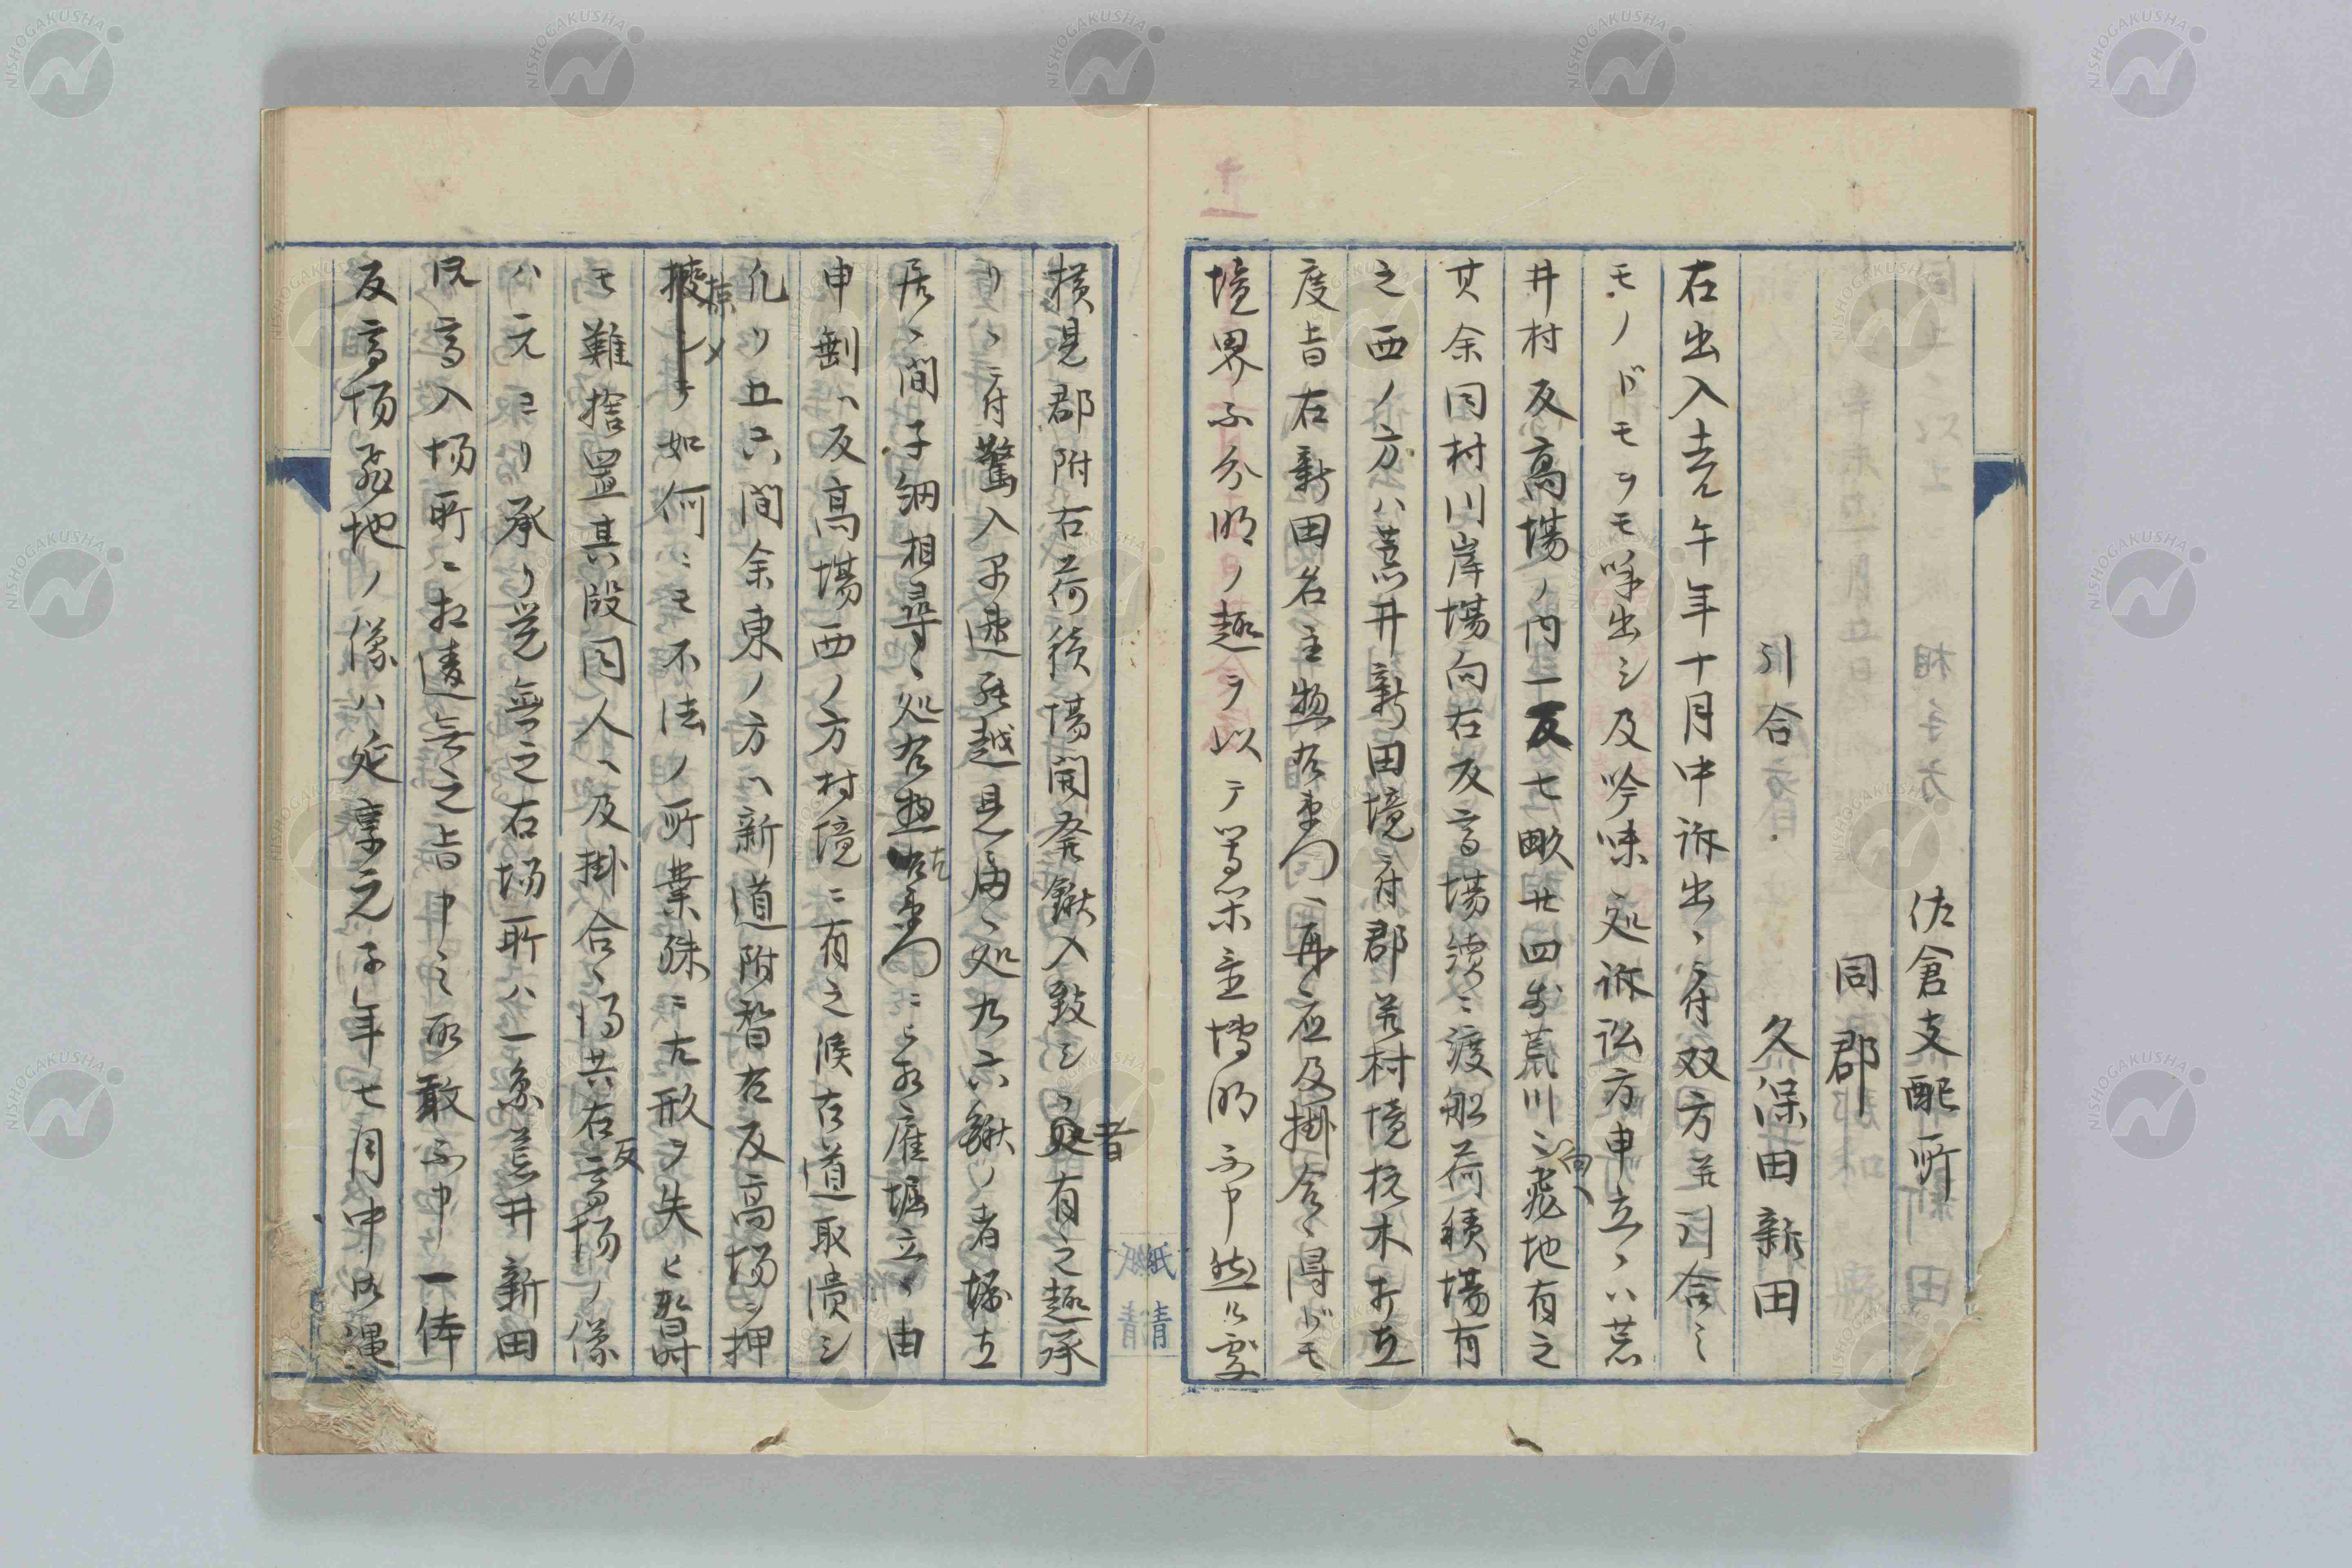 佐倉支配所
同郡
久保田新田
引合
右出入去ル午年十月中訴出ヽニ付双方并引合ノ
モノドモヲモ呼出シ及吟味処訴訟方申立ヽハ荒
井村反高場ノ内一反七畝廿四歩荒川向ヘ飛地有之
其余同村川岸場向右反高場續ニ渡船荷積場有
之西ノ方ハ荒井新田境ニ付郡并村境杭木打立
度旨右新田名主惣右衛門ヘ再応及掛合ヽ得ドモ
境界不分明ノ趣ヲ以テ等閑
横見郡附右荷積場開発鍬入致シヽ旨有之趣承
リヽニ付驚入早速罷越見届ヽ処九六鍬ノ者堀立
居ヽ間子細相尋ヽ処右惣右衛門ニヒ被雇堀立ヽ由
申剩ヘ反高場西ノ方村境ニ有之候古道取潰シ
凡ソ五六間余東ノ方ヘ新道附替右反高場ヲ押
掠メ如何ニモ不法ノ所業殊ニ古形ヲ失ヒ暫時
モ難捨置其段同人ヘ及掛合ヽ得共右反高場ノ儀
ハ元ヨリ承リ覚無之右場所ハ一象荒井新田
流高入場所ニ相違無之旨申シ取敢不申一体
反高場飛地ノ儀ハ延享元子年七月中御縄
紙 清